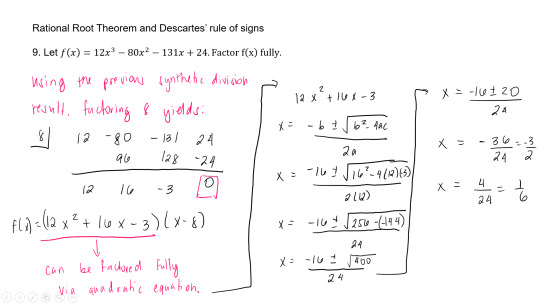 Rational Root Theorem and Descartes' rule of signs
9. Let f(x) = 12x³ − 80x² − 131x + 24. Factor f(x) fully.
using the previous synthetic division
result, factoring 8 yields:
8| 12 -80 -131 24
96 128 -24
12 16 -3 0
f(x) = (12x² + 16x - 3)(x - 8)
can be factored fully
via quadratic equation.
12x² + 16x - 3
x = -b ± √b² - 4ac
2a
x = -16 ± √16² - 4(12)(-3)
2(12)
x = -16 ± √256 - (-144)
24
x = -16 ± √400
24
x = -16 ± 20
24
x = -36/24 = -3/2
x = 4/24 = 1/6